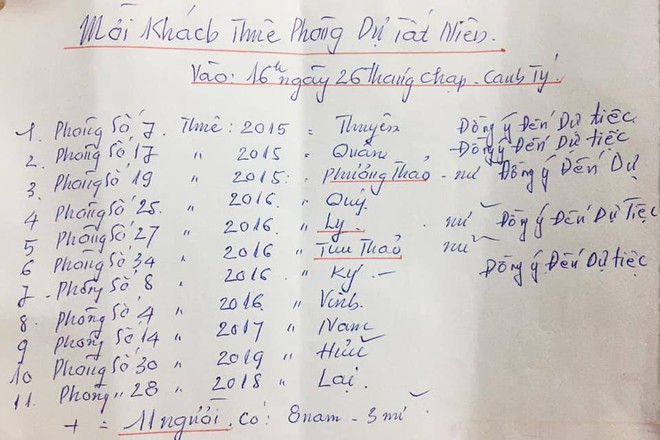 Mời Khách Thuê Phòng Dự Tất Niên.
Vào: 16h ngày 26 tháng chạp - canh Tý.
1. Phòng Số 7. Thuê: 2015 = Thuyên Đồng ý Đến Dự tiệc
2. Phòng Số 17 " 2015 = Quân Đồng ý Đến Dự tiệc
3. Phòng Số 19 " 2015: Phương Thảo - nữ Đồng ý Đến Dự
4 Phòng Số 25. " 2016. " Quý.
5 Phòng Số 27 " 2016. " Ly. nữ Đồng ý Đến Dự Tiệc
6 Phòng Số 34 " 2016 " Thu Thảo nữ
7 - Phòng Số 8 " 2016 " Ký. - Đồng ý Đến Dự tiệc
8. Phòng Số 4 " 2016. " Vinh.
9 Phòng Số 14 " 2017 " Nam
10 Phòng Số 30 " 2019 " Hữu
11. Phòng " 28 " 2018 " Lai.
+ = 11 người. có: 8 nam - 3 nữ.